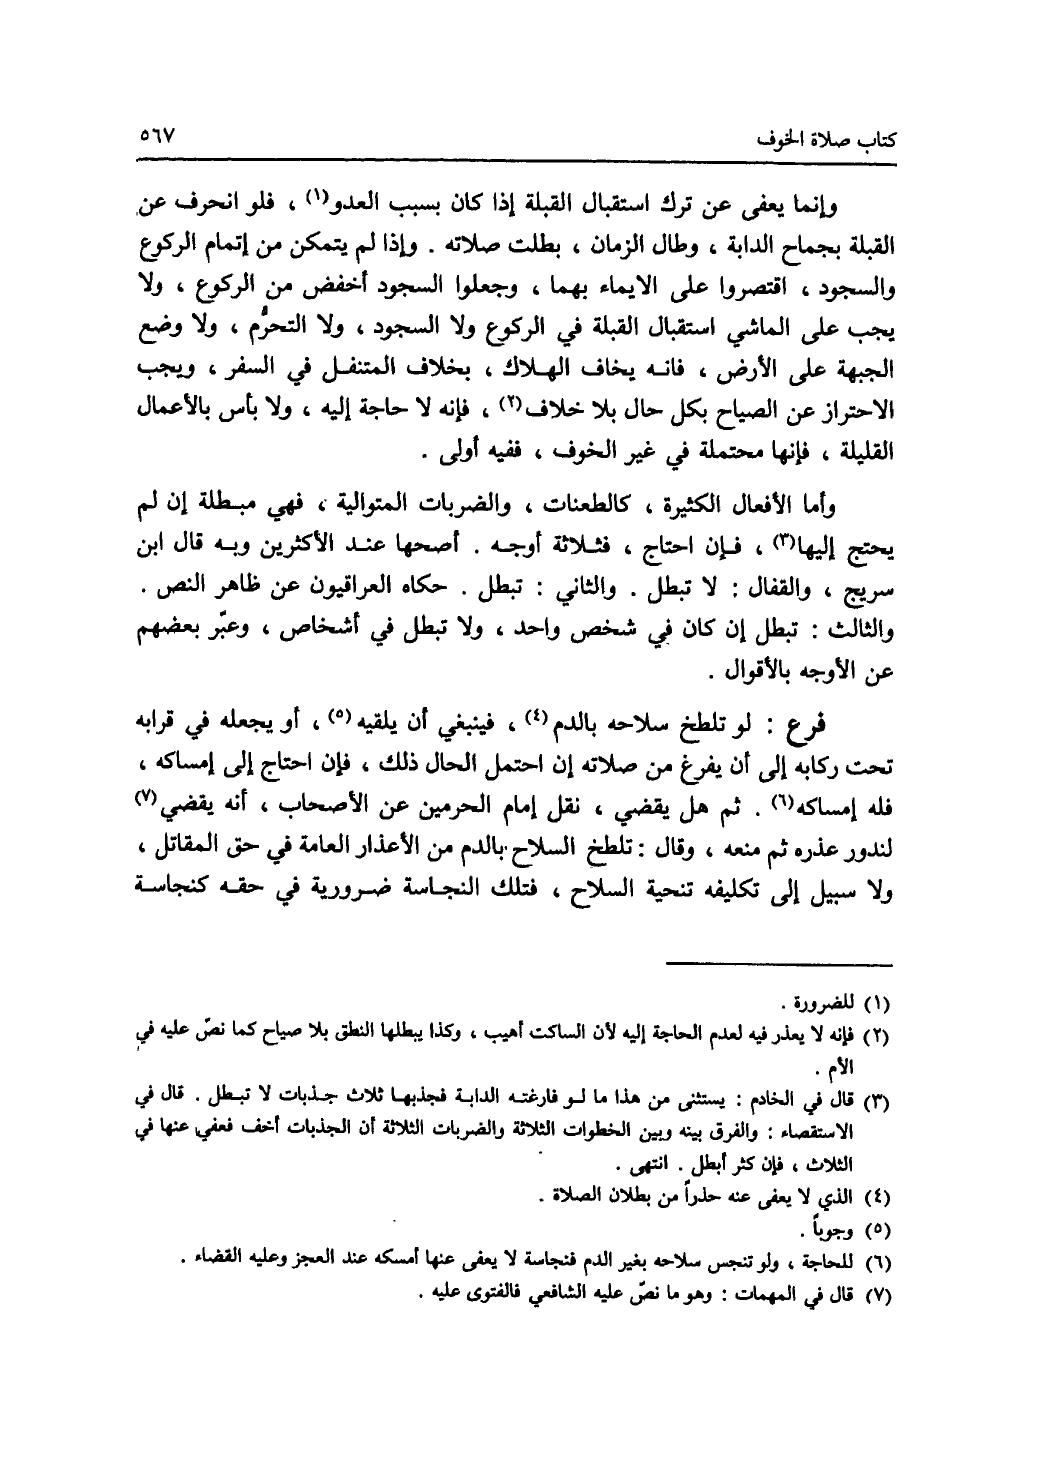 كتاب صلاة الخوف
٥٦٧
وإنما يعفى عن ترك استقبال القبلة إذا كان بسبب العدو(١) ، فلو انحرف عن
القبلة بجماح الدابة ، وطال الزمان ، بطلت صلاته . وإذا لم يتمكن من إتمام الركوع
والسجود ، اقتصروا على الايماء بهما ، وجعلوا السجود أخفض من الركوع ، ولا
يجب على الماشي استقبال القبلة في الركوع ولا السجود ، ولا التحرُّم ، ولا وضع
الجبهة على الأرض ، فانه يخاف الهلاك ، بخلاف المتنفل في السفر ، ويجب
الاحتراز عن الصياح بكل حال بلا خلاف(٢) ، فإنه لا حاجة إليه ، ولا بأس بالأعمال
القليلة ، فإنها محتملة في غير الخوف ، ففيه أولى .
وأما الأفعال الكثيرة ، كالطعنات ، والضربات المتوالية ، فهي مبطلة إن لم
يحتج إليها(٣) ، فإن احتاج ، فثلاثة أوجه . أصحها عند الأكثرين وبه قال ابن
سريج ، والقفال : لا تبطل . والثاني : تبطل . حكاه العراقيون عن ظاهر النص .
والثالث : تبطل إن كان في شخص واحد ، ولا تبطل في أشخاص ، وعبّر بعضهم
عن الأوجه بالأقوال .
فرع : لو تلطخ سلاحه بالدم(٤) ، فينبغي أن يلقيه(٥) ، أو يجعله في قرابه
تحت ركابه إلى أن يفرغ من صلاته إن احتمل الحال ذلك ، فإن احتاج إلى إمساكه ،
فله إمساكه(٦) . ثم هل يقضي ، نقل إمام الحرمين عن الأصحاب ، أنه يقضي(٧)
لندور عذره ثم منعه ، وقال : تلطخ السلاح بالدم من الأعذار العامة في حق المقاتل ،
ولا سبيل إلى تكليفه تنحية السلاح ، فتلك النجاسة ضرورية في حقه كنجاسة
(١) للضرورة .
(٢) فإنه لا يعذر فيه لعدم الحاجة إليه لأن الساكت أهيب ، وكذا يبطلها النطق بلا صياح كما نصّ عليه في
الأم .
(٣) قال في الخادم : يستثنى من هذا ما لو فارغته الدابة فجذبها ثلاث جذبات لا تبطل . قال في
الاستقصاء : والفرق بينه وبين الخطوات الثلاثة والضربات الثلاثة أن الجذبات أخف فعفي عنها في
الثلاث ، فإن كثر أبطل . انتهى .
(٤) الذي لا يعفى عنه حذراً من بطلان الصلاة .
(٥) وجوباً .
(٦) للحاجة ، ولو تنجس سلاحه بغير الدم فنجاسة لا يعفى عنها أمسكه عند العجز وعليه القضاء .
(٧) قال في المهمات : وهو ما نصّ عليه الشافعي فالفتوى عليه .